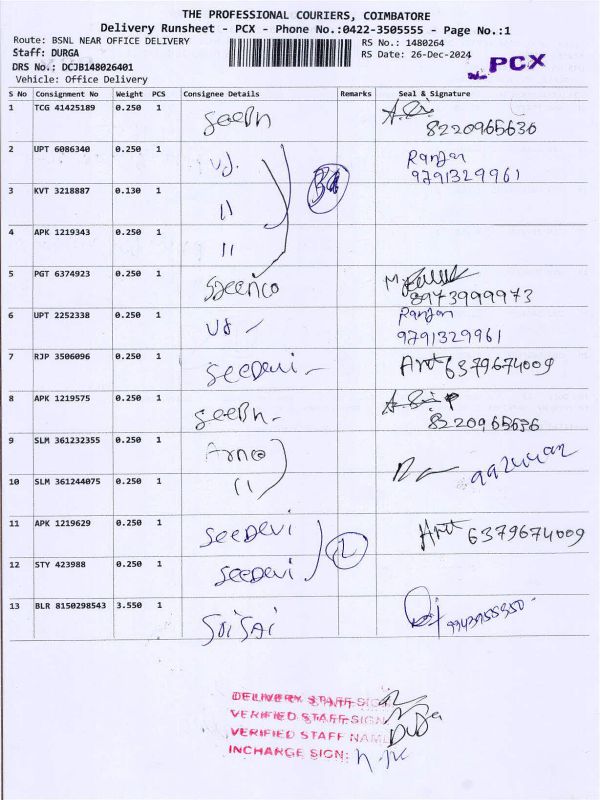 THE PROFESSIONAL COURIERS, COIMBATORE
Delivery Runsheet - PCX - Phone No.:0422-3505555 - Page No.:1
Route: BSNL NEAR OFFICE DELIVERY
RS No.: 1480264
Staff: DURGA
RS Date: 26-Dec-2024
DRS No.: DCJB148026401
PCX
Vehicle: Office Delivery
S No Consignment No Weight PCS Consignee Details Remarks Seal & Signature
1 TCG 41425189 0.250 1
8220965636
2 UPT 6086340 0.250 1 Ranjan
9791329961
3 KVT 3218887 0.130 1 11
4 APK 1219343 0.250 1 11
5 PGT 6374923 0.250 1
8973999973
6 UPT 2252338 0.250 1 Ranjan
9791329961
7 RJP 3506096 0.250 1 SEEDevi 6379674009
8 APK 1219575 0.250 1
8220965636
9 SLM 361232355 0.250 1
10 SLM 361244075 0.250 1 11
11 APK 1219629 0.250 1 SEEDEVI 6379674009
12 STY 423988 0.250 1 SEEDEVI
13 BLR 8150298543 3.550 1 SAI
DELIVERY STAFF SIGN
VERIFIED STAFF SIGN
VERIFIED STAFF NAME
INCHARGE SIGN: